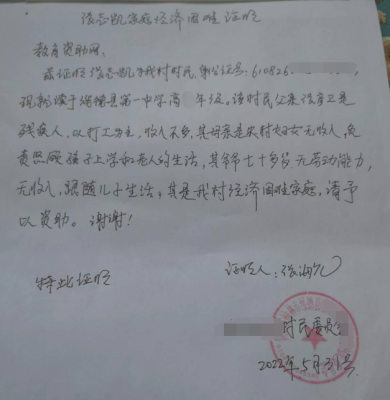 张志凯家庭经济困难证明
教育资助网:
兹证明张志凯为我村村民,身份证号:610826
现就读于绥德县第一中学高 年级。该村民父亲张 卫是
残疾人,以打工为生,收入不多,其母亲是农村妇女无收入,负
责照顾孩子上学和老人的生活,其爷爷七十多岁无劳动能力,
无收入,跟随儿子生活,其是我村经济困难家庭,请予
以资助。谢谢!
特此证明
证明人:张海
村民委员
2022年5月31号